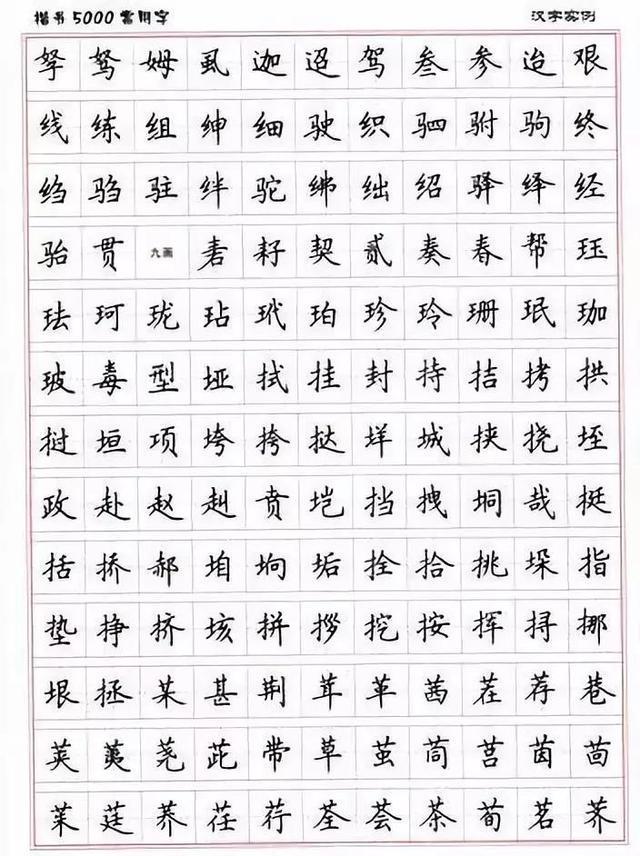 楷书5000常用字 汉字实例
孥 驽 姆 虱 迦 迢 驾 叁 参 迨 艰
线 练 组 绅 细 驶 织 驷 驸 驹 终
绉 驺 驻 绊 驼 绋 绌 绍 驿 绎 经
骀 贯 九画 砉 耔 契 贰 奏 春 帮 珏
珐 珂 珑 玷 玳 珀 珍 玲 珊 珉 珈
玻 毒 型 垭 拭 挂 封 持 拮 拷 拱
挝 垣 项 垮 挎 挞 垟 城 挟 挠 垤
政 赴 赵 赳 贲 垲 挡 拽 垌 哉 挺
括 挢 郝 垍 垧 垢 拴 拾 挑 垛 指
垫 挣 挤 垓 拼 拶 挖 按 挥 挦 挪
垠 拯 某 甚 荆 茸 革 茜 茬 荐 巷
荚 荑 荛 茈 带 草 茧 茼 莒 茵 茴
茱 莛 荞 茌 荇 荃 荟 茶 荀 茗 荠